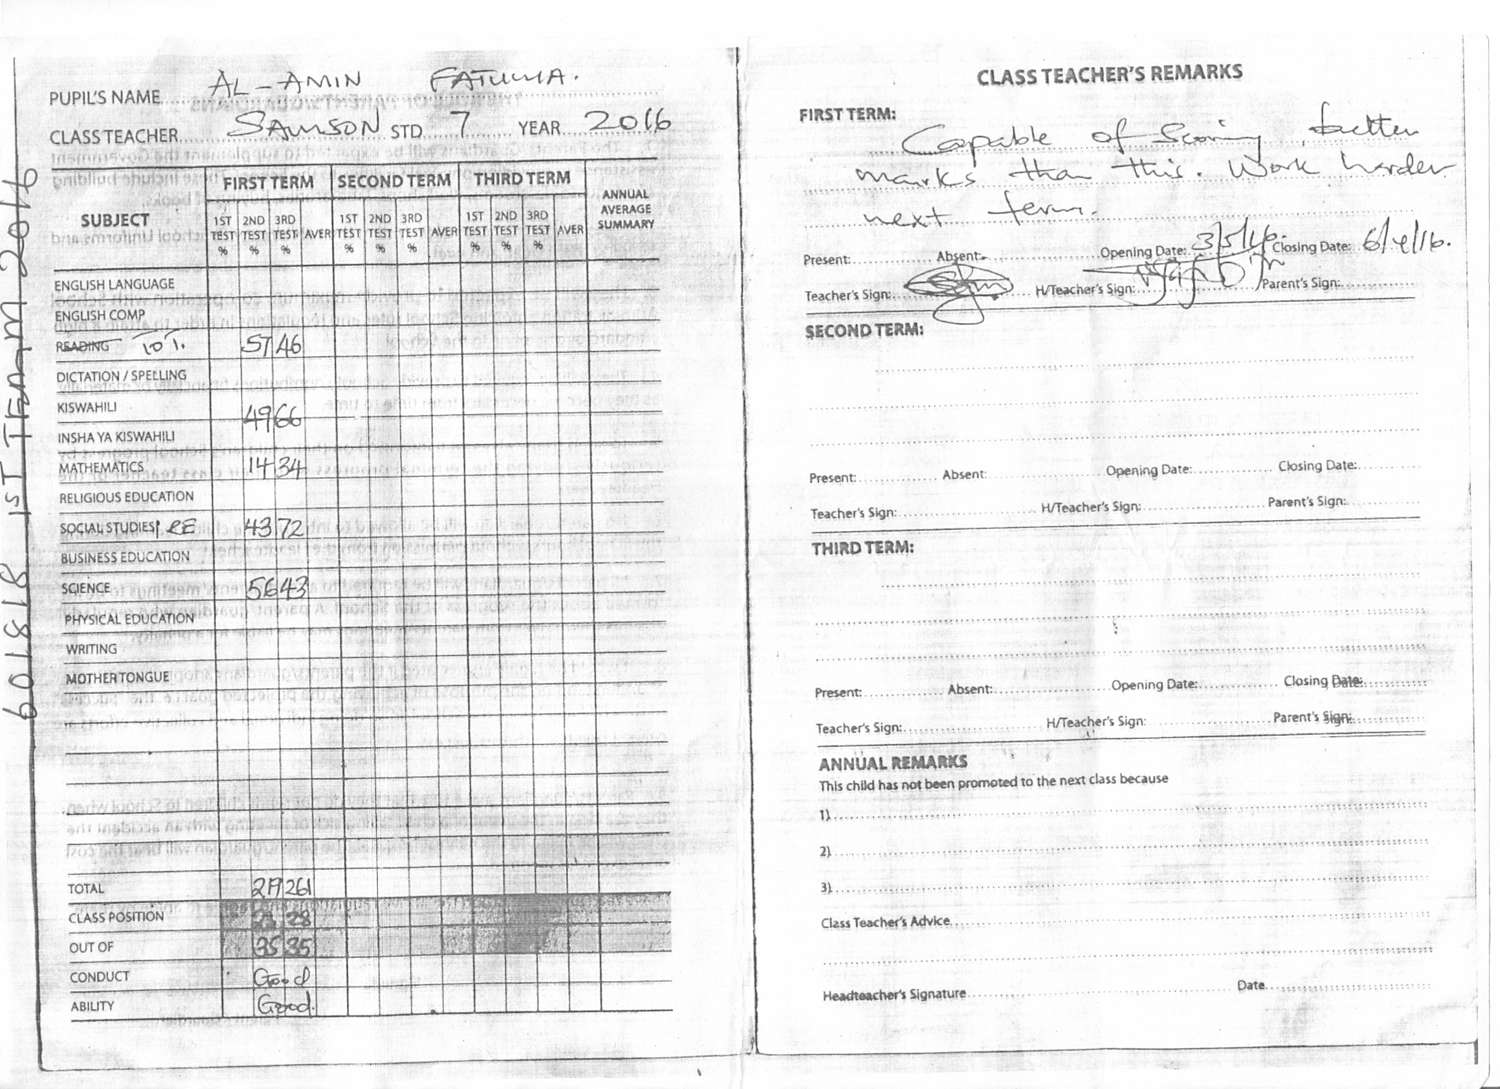 PUPIL'S NAME AL-AMIN FATUMA.
CLASS TEACHER SAMSON STD. 7 YEAR 2016
SUBJECT FIRST TERM SECOND TERM THIRD TERM ANNUAL AVERAGE SUMMARY
1ST TEST % 2ND TEST % 3RD TEST % AVER 1ST TEST % 2ND TEST % 3RD TEST % AVER 1ST TEST % 2ND TEST % 3RD TEST % AVER
ENGLISH LANGUAGE
ENGLISH COMP
READING 57 46
DICTATION / SPELLING
KISWAHILI 49 66
INSHA YA KISWAHILI
MATHEMATICS 14 34
RELIGIOUS EDUCATION
SOCIAL STUDIES RE 43 72
BUSINESS EDUCATION
SCIENCE 56 43
PHYSICAL EDUCATION
WRITING
MOTHER TONGUE
TOTAL 261
CLASS POSITION 28
OUT OF 35 35
CONDUCT Good
ABILITY Good.
601818109 1ST TEAM 2016
CLASS TEACHER'S REMARKS
FIRST TERM:
Capable of Scoring better
marks than this. Work harder
next term.
Present: Absent: Opening Date: 3/5/16. Closing Date: 6/4/16.
Teacher's Sign: H/Teacher's Sign: Parent's Sign:
SECOND TERM:
Present: Absent: Opening Date: Closing Date:
Teacher's Sign: H/Teacher's Sign: Parent's Sign:
THIRD TERM:
Present: Absent: Opening Date: Closing Date:
Teacher's Sign: H/Teacher's Sign: Parent's Sign:
ANNUAL REMARKS
This child has not been promoted to the next class because
1)
2)
3)
Class Teacher's Advice
Headteacher's Signature Date